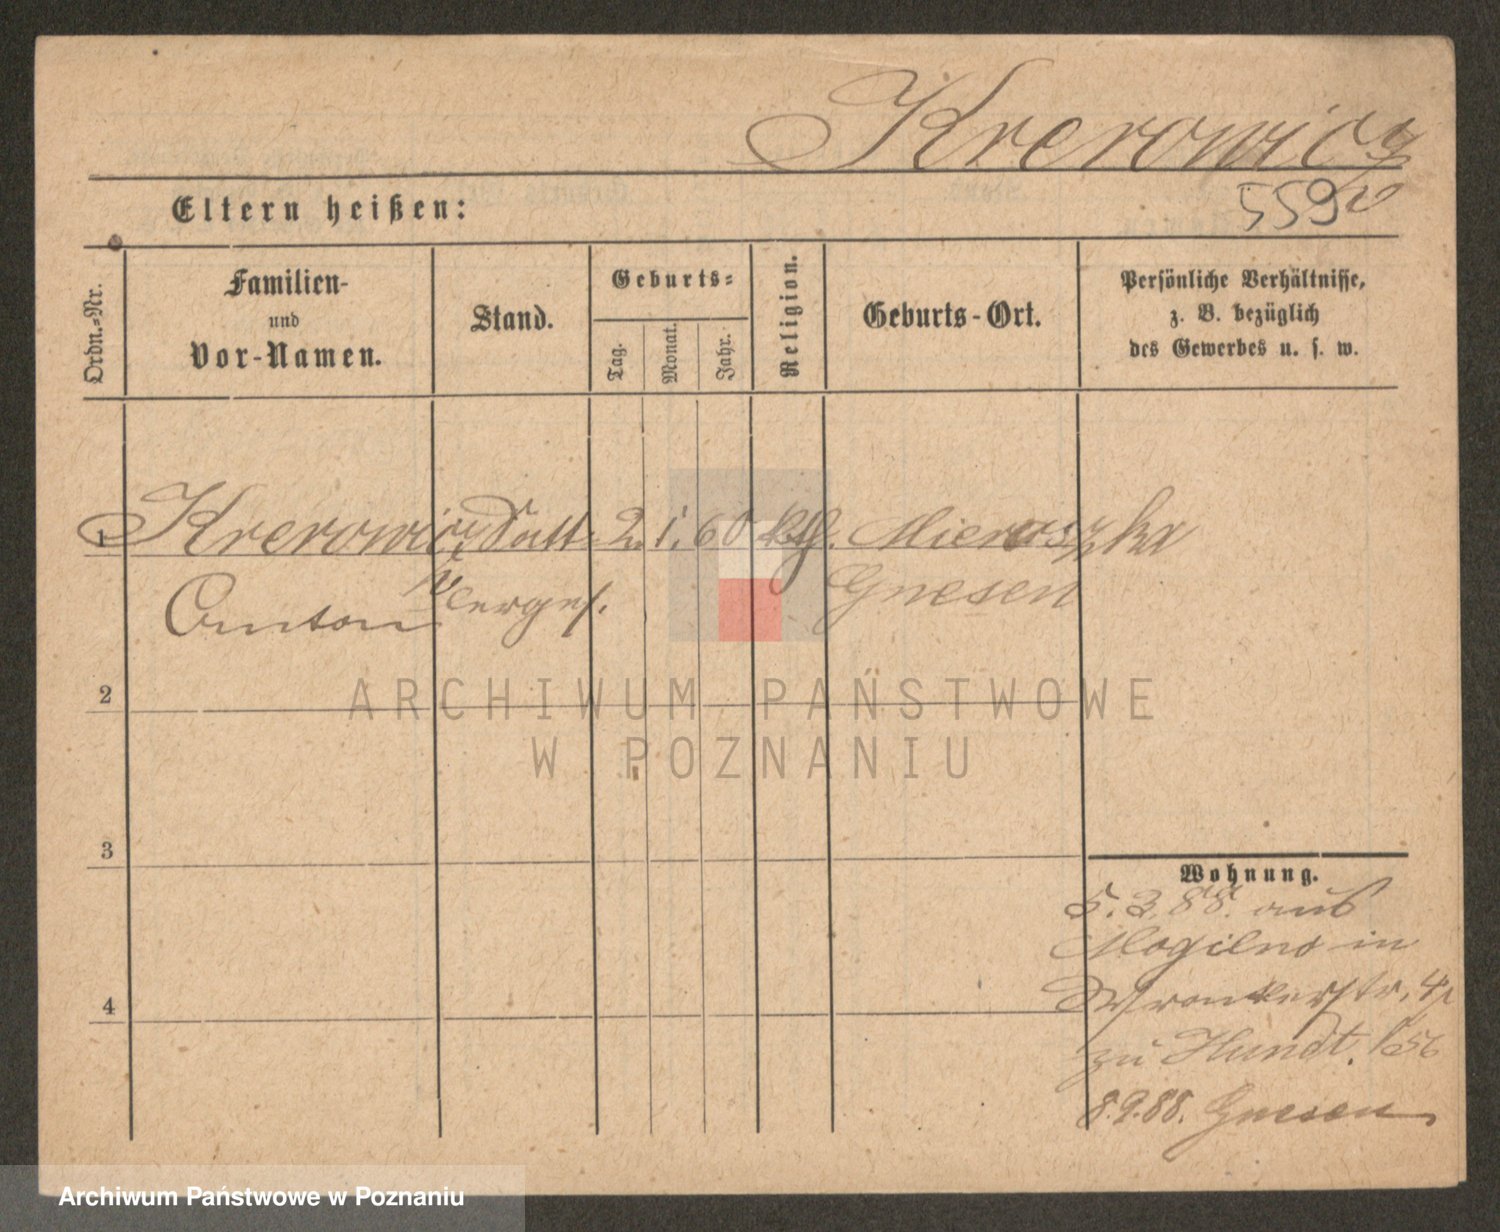 Krerowicz
559
Eltern heißen:
Ordn.-Nr.
Familien-
und
Vor-Namen.
Stand.
Geburts-
Tag.
Monat.
Jahr.
Religion.
Geburts-Ort.
Persönliche Verhältnisse,
z. B. bezüglich
des Gewerbes u. s. w.
1 Krerowicz Satt- 2. 1. 60 kth. Mieroszka
Anton Gnesen
2
3
4
Wohnung.
5. 3. 88. aus
Mogilno in
Wronkerstr. 4
zu Hundt.
8.9.88. Gnesen
ARCHIWUM PAŃSTWOWE
W POZNANIU
Archiwum Państwowe w Poznaniu